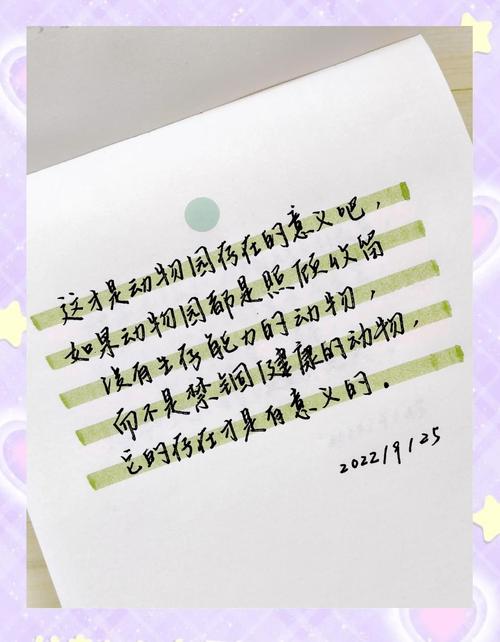 这才是动物园存在的意义吧，
如果动物园都是照顾收留
没有生存能力的动物，
而不是禁锢健康的动物，
它的存在才是有意义的。
2022/9/25